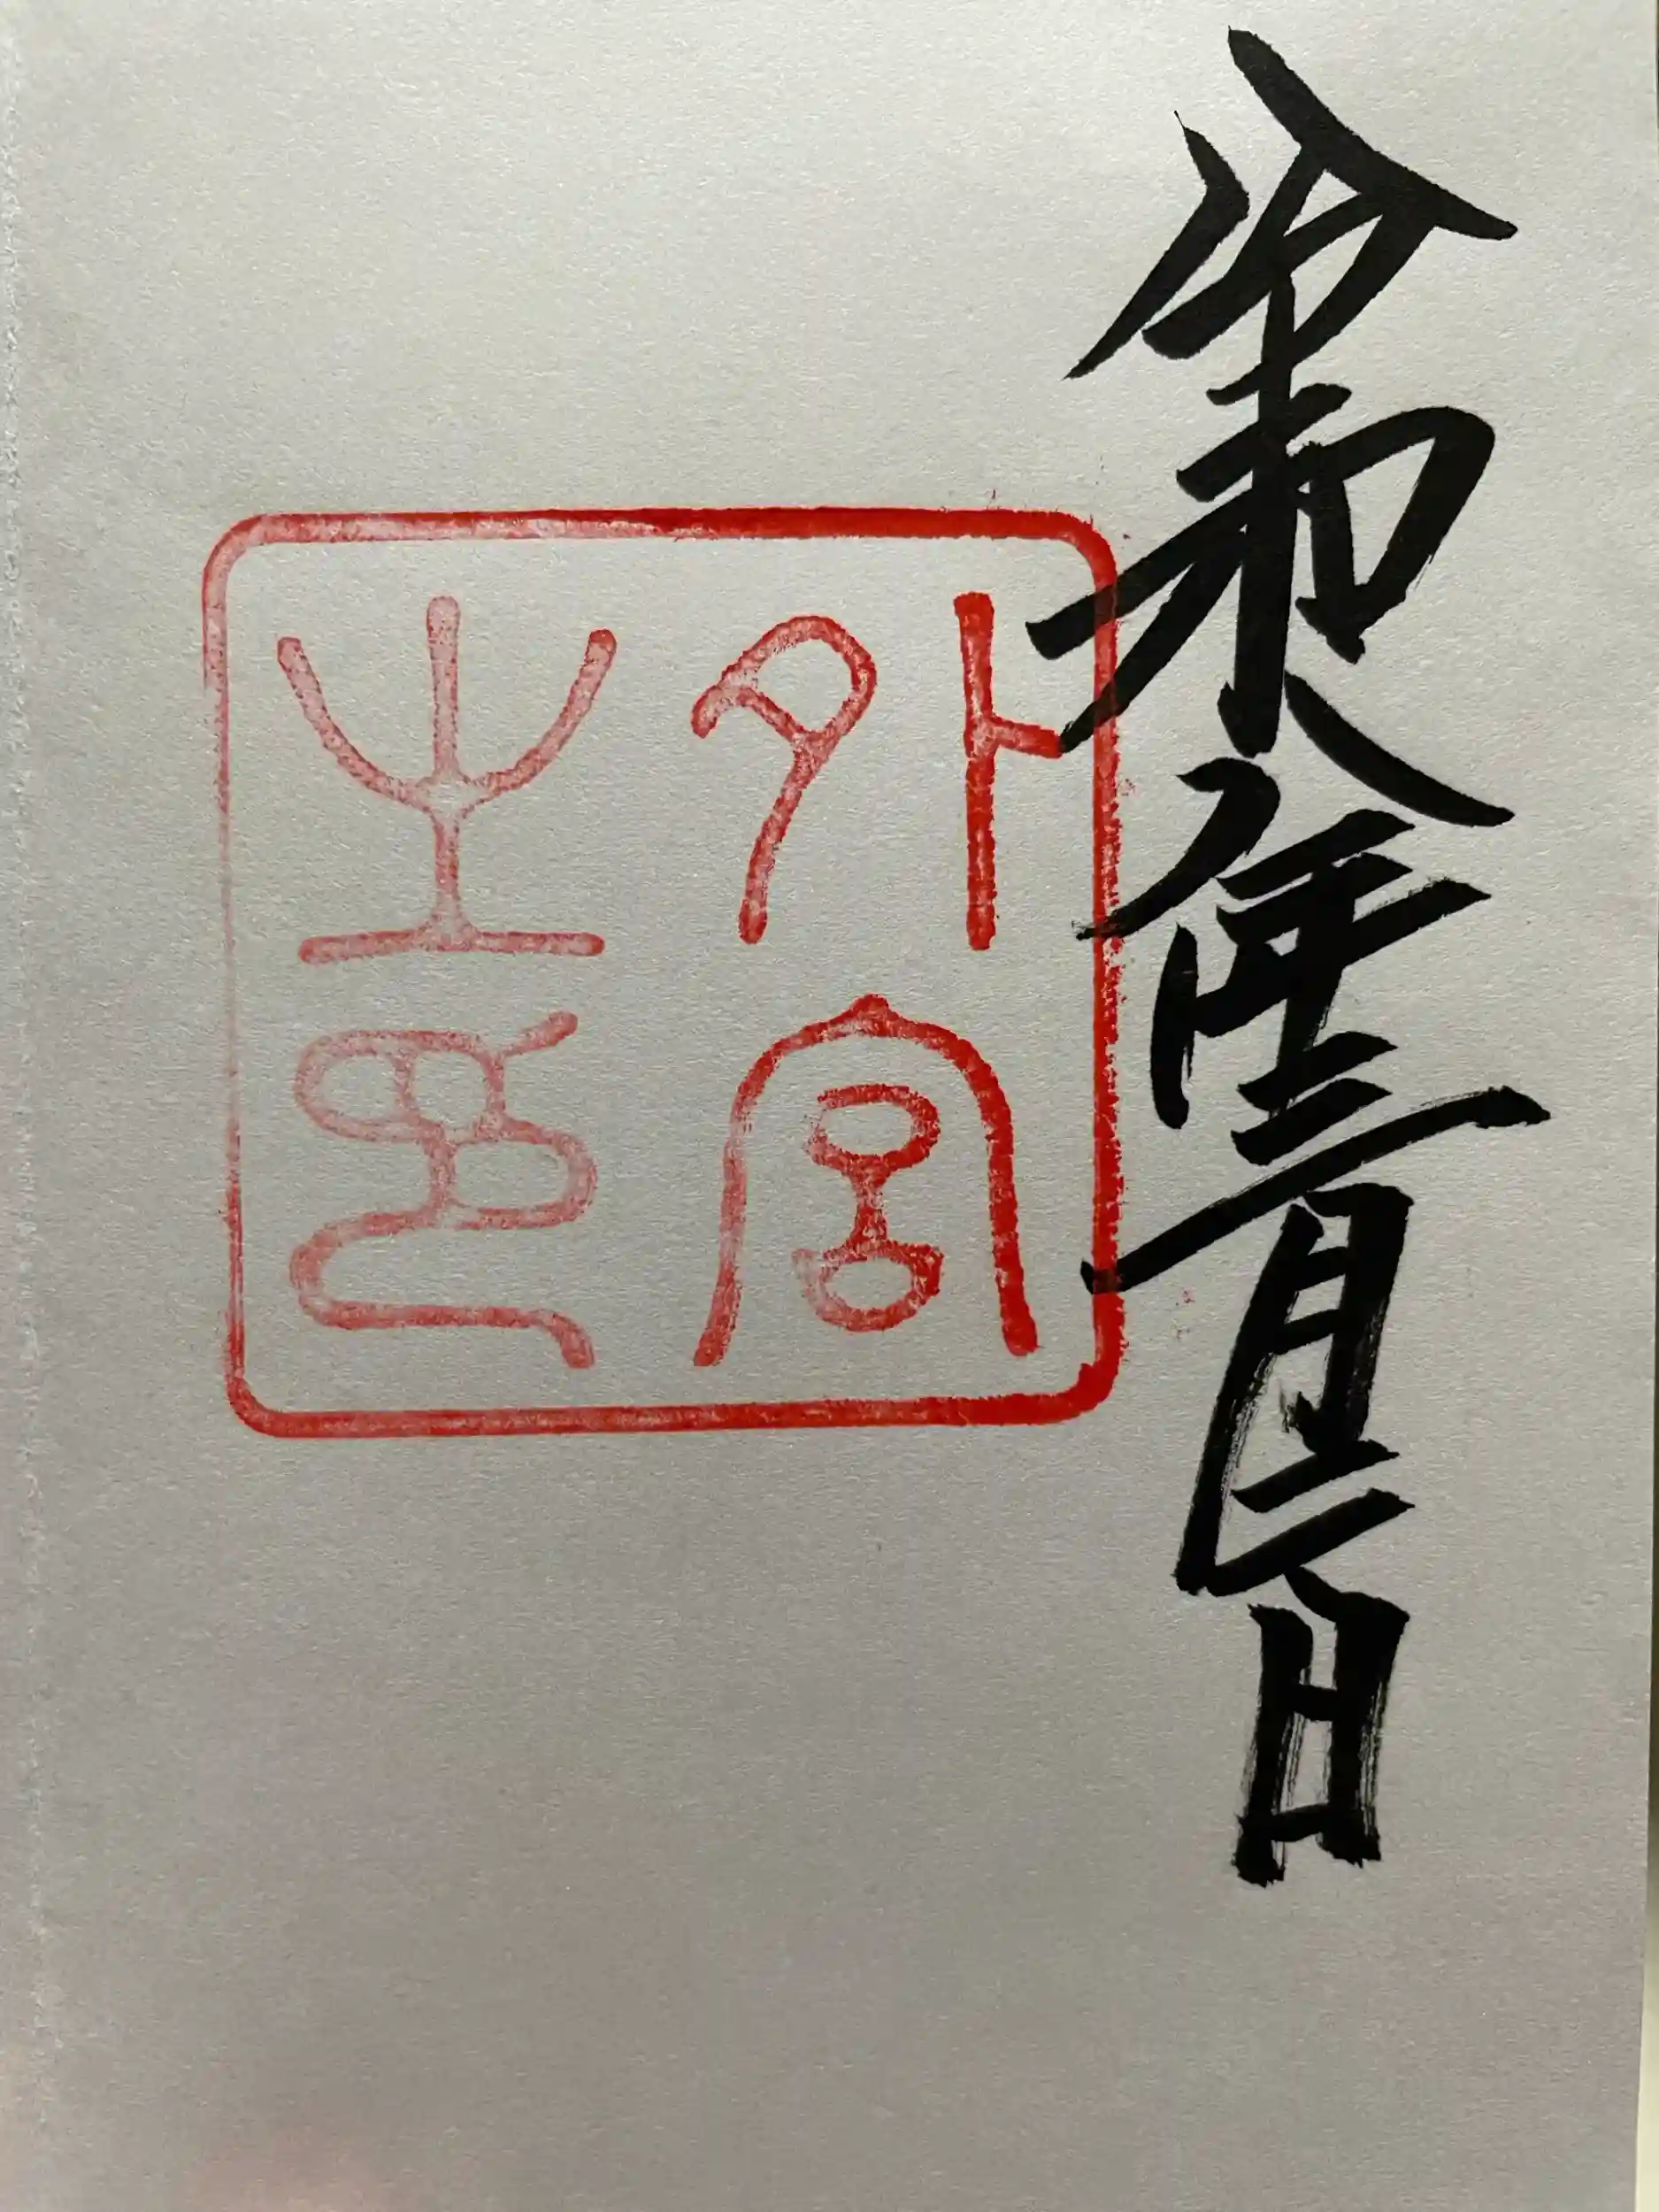 令和八年三月二日
外宮
之印